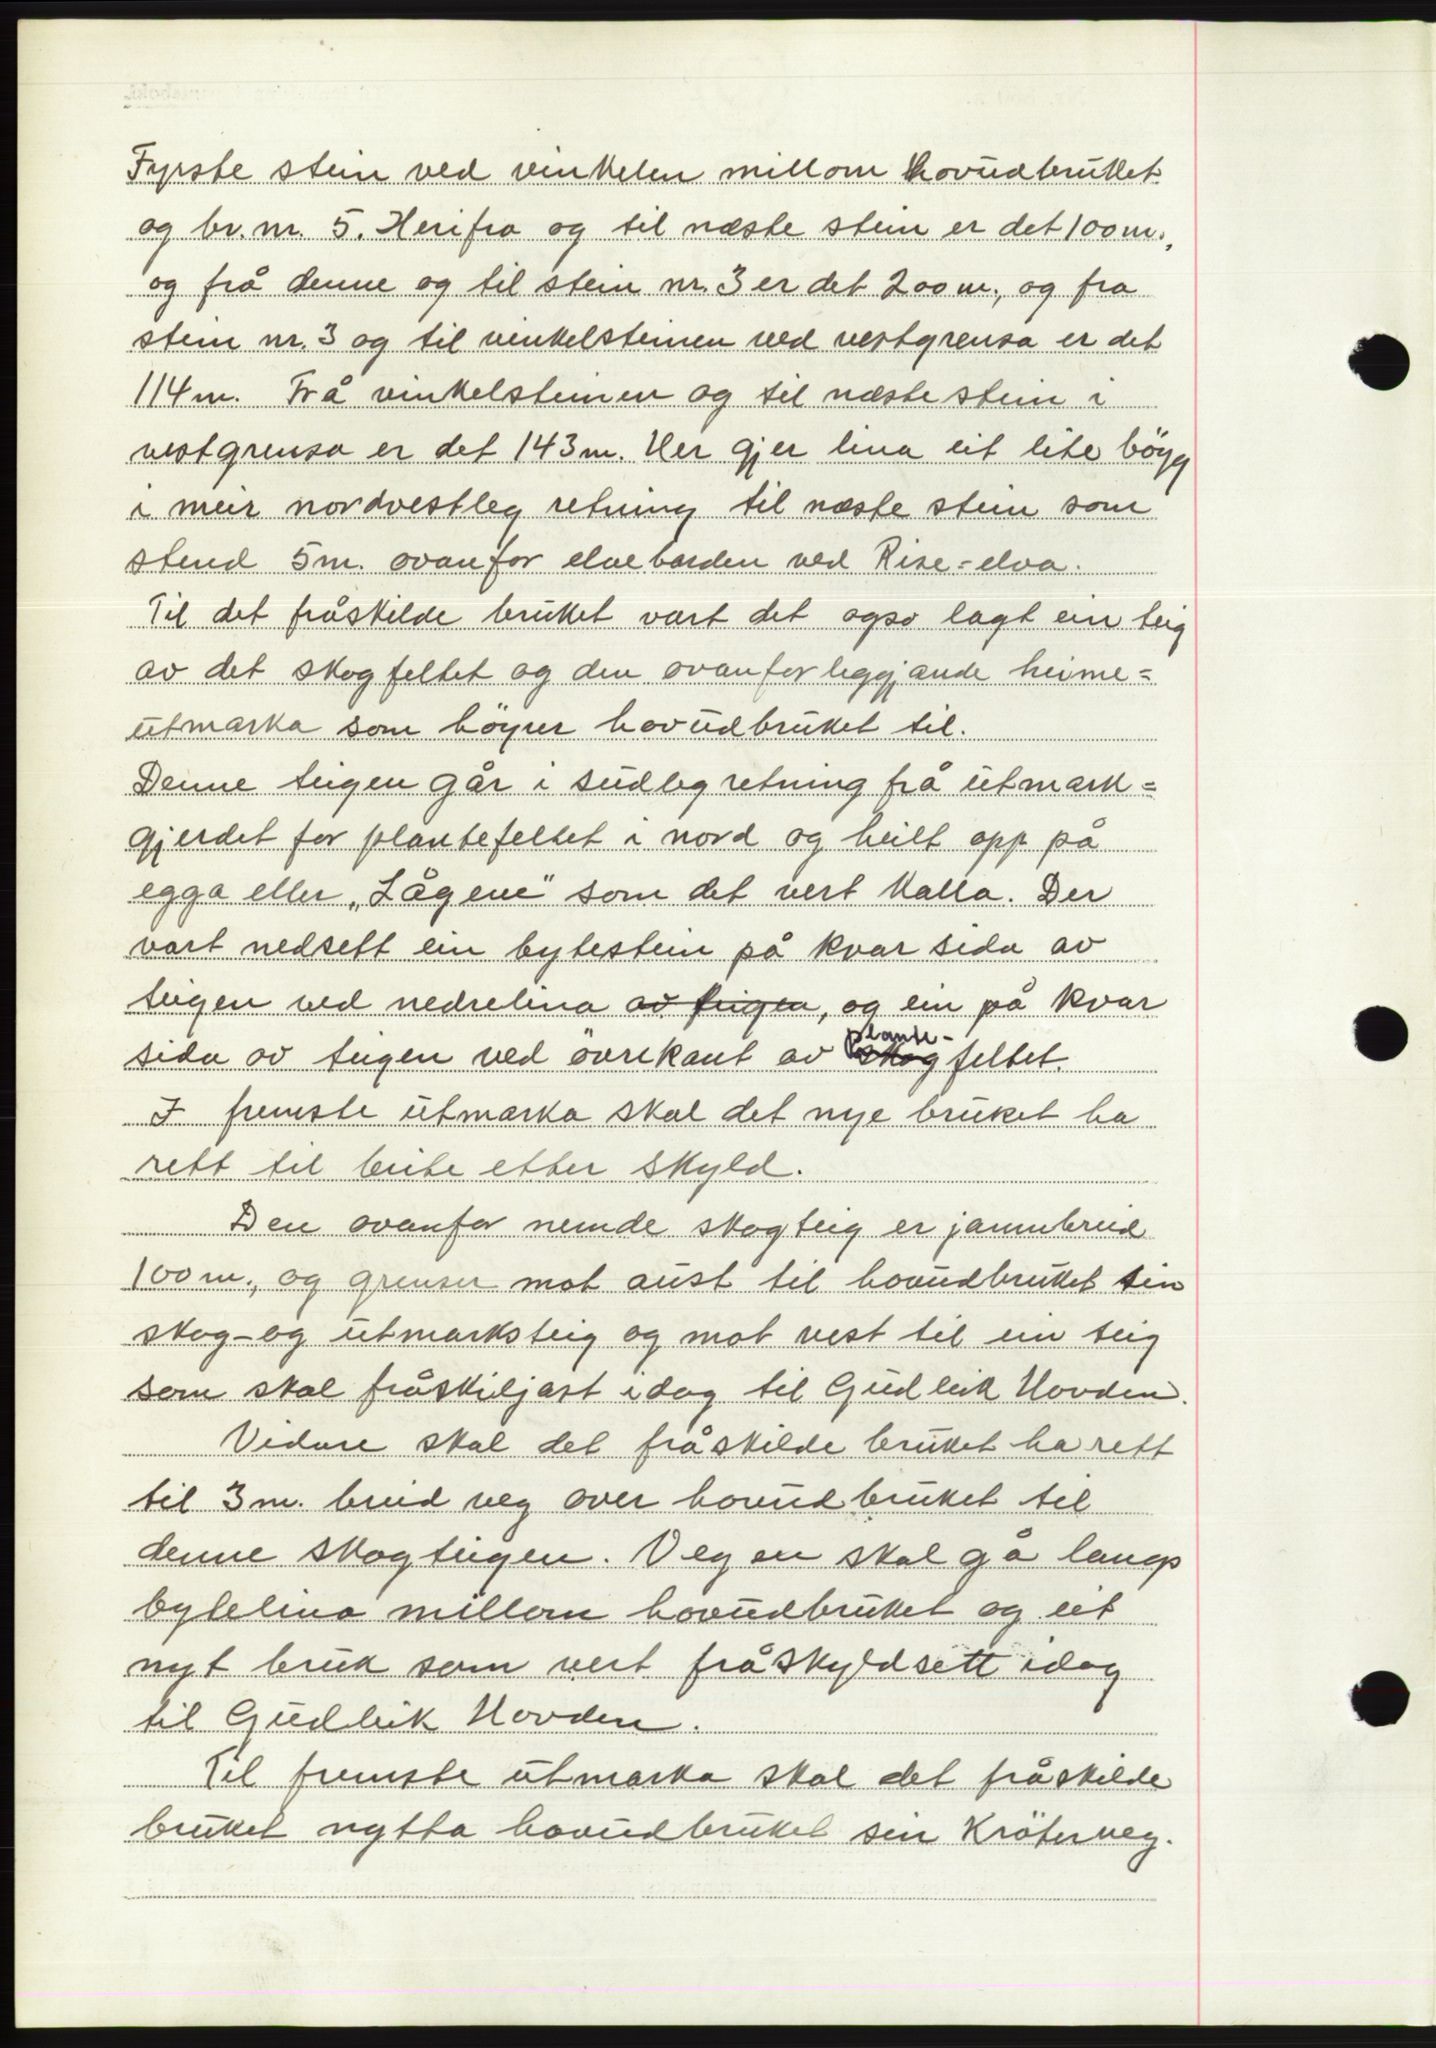 Fyrste stein ved vinkelen millom hovudbruket
og br. nr. 5. Herifra og til næste stein er det 100 m.,
og frå denne og til stein nr. 3 er det 200 m., og fra
stein nr. 3 og til vinkelsteinen ved vestgrensa er det
114 m. Frå vinkelsteinen og til næste stein i
vestgrensa er det 143 m. Her gjer lina eit lite bögg
i meir nordvestleg retning til næste stein som
stend 5 m. ovanfor elvebarden ved Rise=elva.
Til det fråskilde bruket vart det ogso lagt ein teig
av det skogfeltet og den ovanfor leggjande heime=
utmarka som höyrer hovudbruket til.
Denne teigen går i sudleg retning frå utmark=
gjerdet for plantefeltet i nord og heilt opp på
egga eller „Lågene" som det vert kalla. Der
vart nedsett ein bytestein på kvar sida av
teigen ved nedrelina av teigen, og ein på kvar
plante-
sida av teigen ved övrekant av skogfeltet.
I fremste utmarka skal det nye bruket ha
rett til beite etter skyld.
Den ovanfor nemde skogteig er jamnbreid
100 m., og grenser mot aust til hovudbruket sin
skog- og utmarksteig og mot vest til ein teig
som skal fråskiljast idag til Gudleik Hovden.
Vidare skal det fråskilde bruket ha rett
til 3 m. breid veg over hovudbruket til
denne skogteigen. Vegen skal gå langs
bytelina millom hovudbruket og eit
nyt bruk som vert fråskyldsett idag
til Gudleik Hovden.
Til fremste utmarka skal det fråskilde
bruket nytta hovudbruket sin Kröterveg.